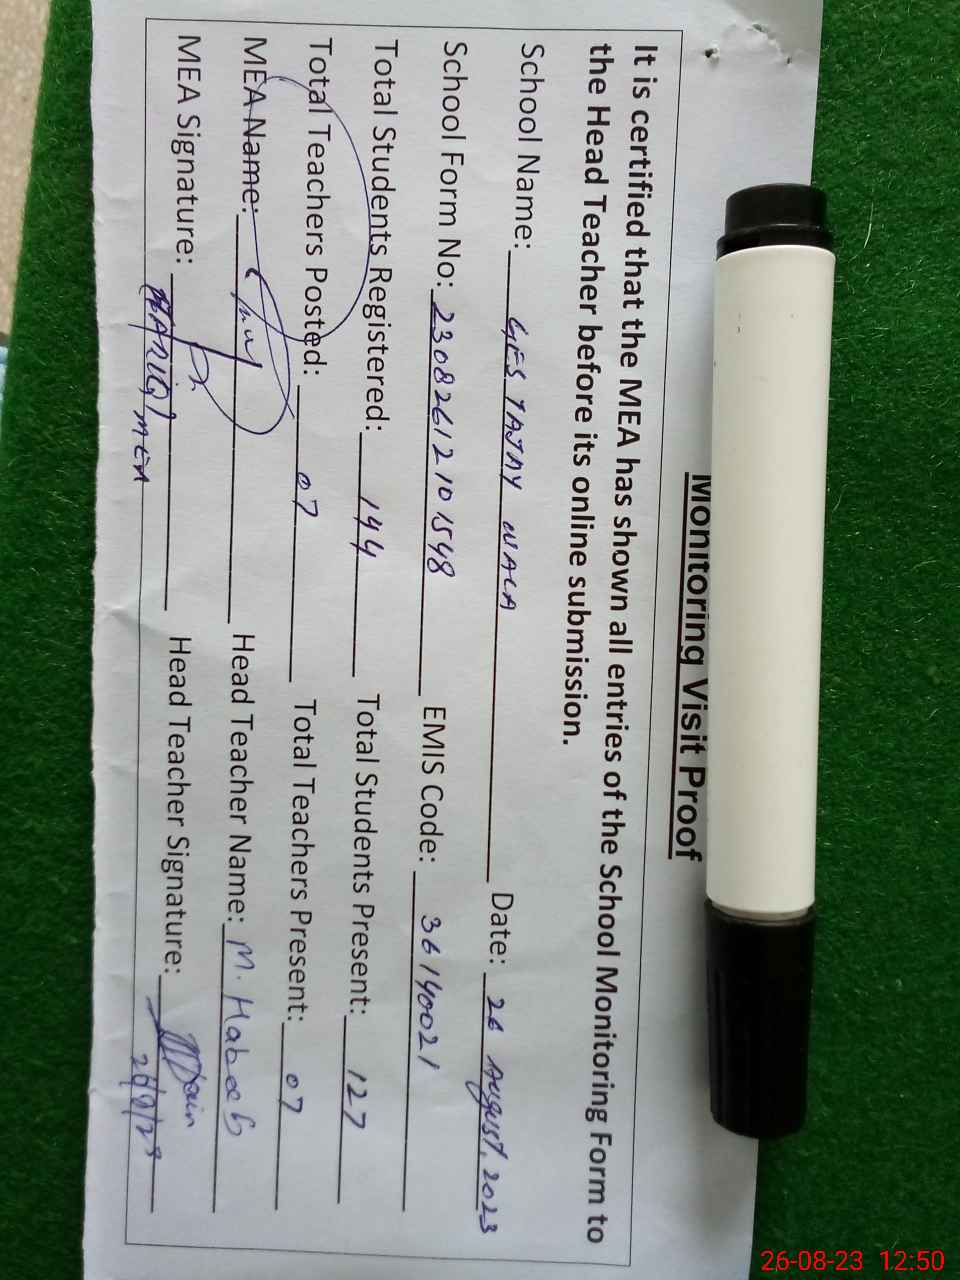 Monitoring Visit Proof
It is certified that the MEA has shown all entries of the School Monitoring Form to
the Head Teacher before its online submission.
School Name: GES TAJAY WALA Date: 26 August, 2023
School Form No: 23082612101548 EMIS Code: 36140021
Total Students Registered: 144 Total Students Present: 127
Total Teachers Posted: 07 Total Teachers Present: 07
MEA Name: Head Teacher Name: M. Habeeb
MEA Signature: Head Teacher Signature:
MEA
26-08-23 12:50